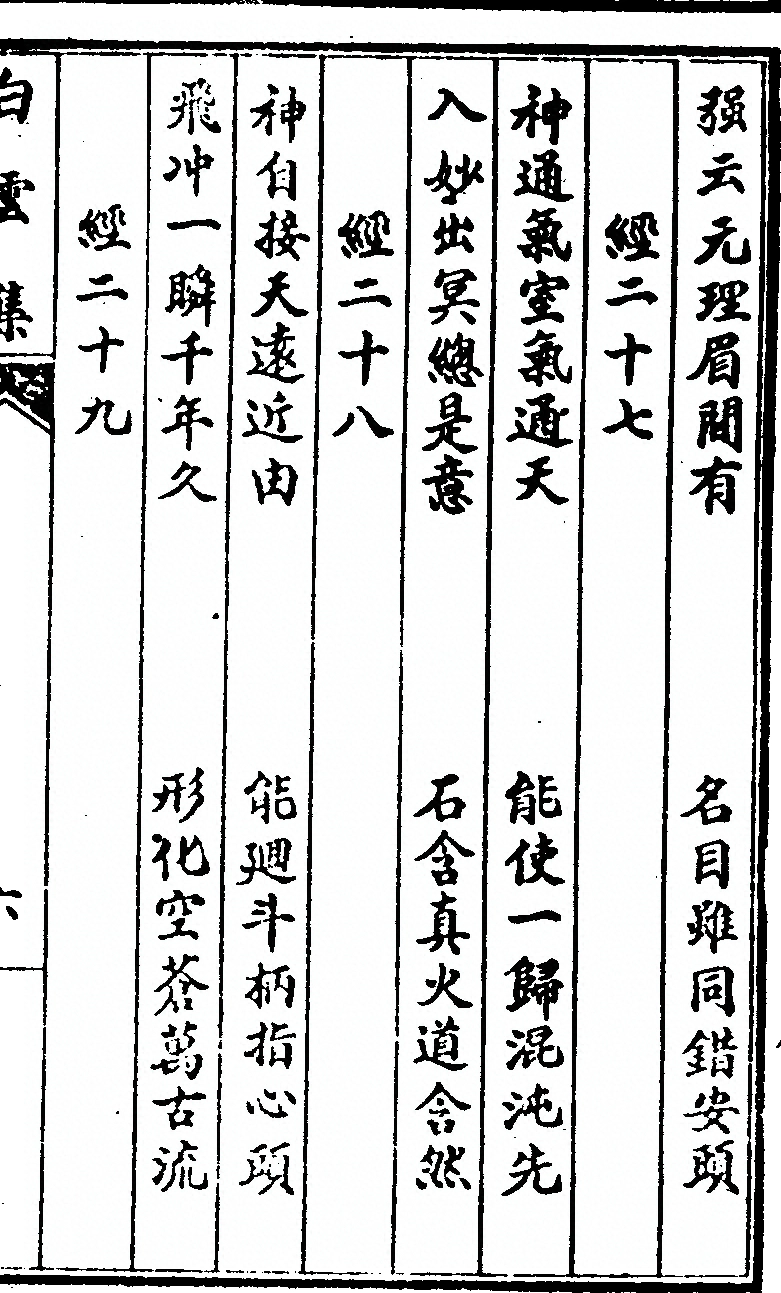 强云元理眉間有　名目雖同錯安頭
經二十七
神通氣室氣通天　能使一歸混沌先
入妙出冥總是意　石含真火道含然
經二十八
神自接天遠近由　能廻斗柄指心頭
飛冲一瞬千年久　形化空蒼萬古流
經二十九
白雲集
六